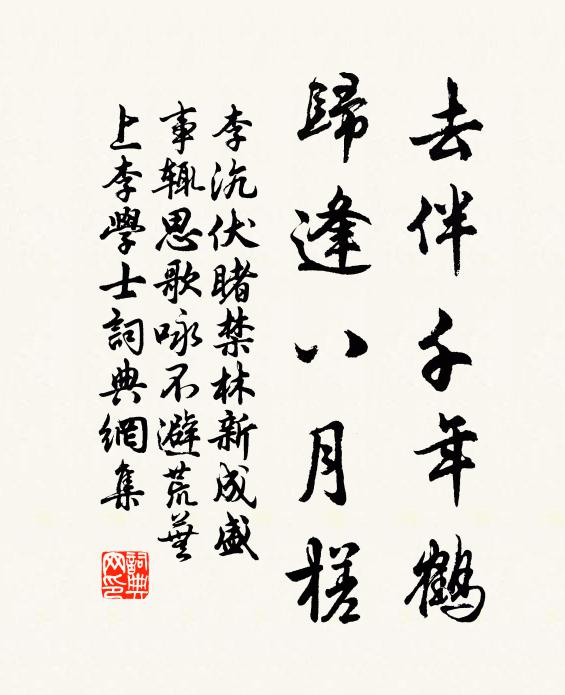 去伴千年鶴
歸逢八月槎
李沆伏睹禁林新成盛
事輒思歌咏不避荒蕪
上李學士詞典網集
詞典
网印